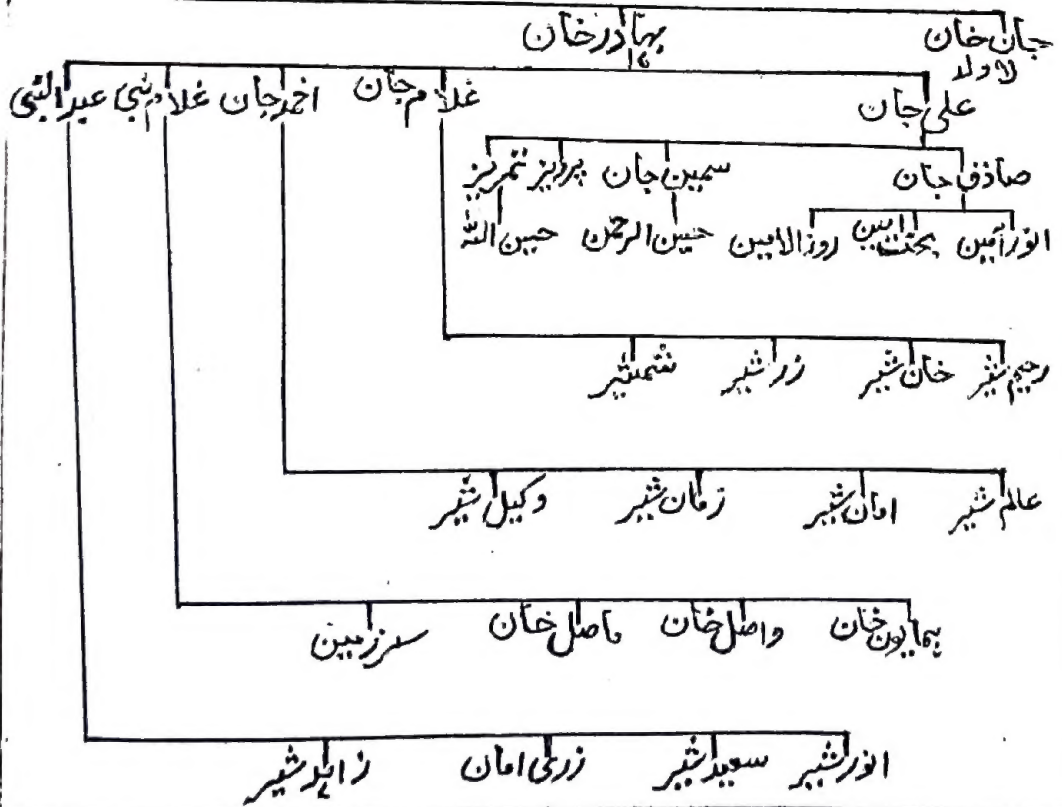 جان خان بہادر خان
لا ولد
علی جان غلام جان احمد جان غلام نبی عبدالنبی
صادق جان سمین جان پرویز تمریز
انور آمین بخت امین روز الامین حسین الرحمٰن حسین اللہ
رحیم شیر خان شیر زر شیر شمشیر
عالم شیر امان شیر زمان شیر وکیل شیر
ہمایون خان واصل خان فاصل خان سرزمین
انور شیر سعید شیر زری امان زاہد شیر